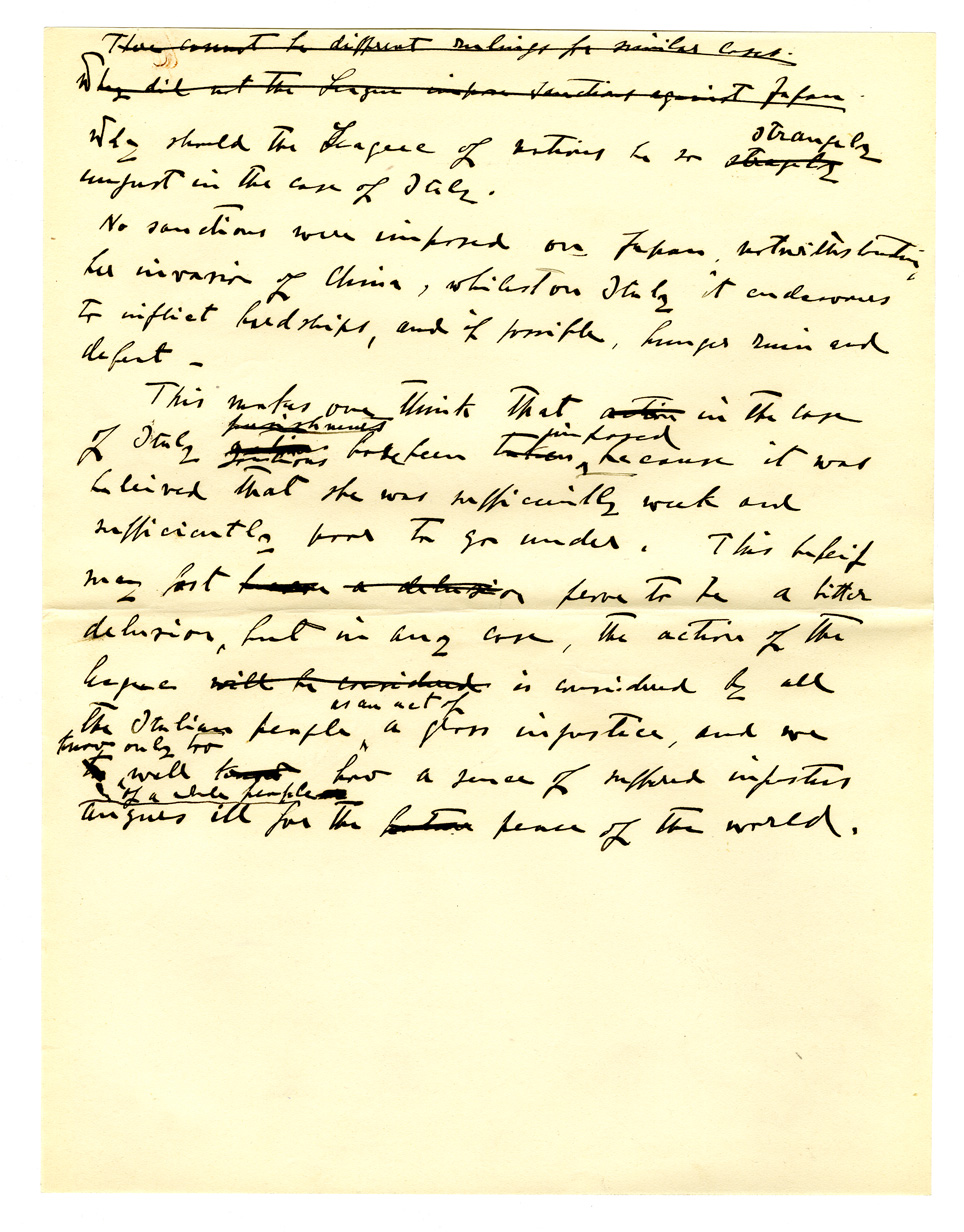 There cannot be different rulings for similar cases.
Why did not the League impose sanctions against Japan.
strangely
Why should the League of nations be so stragely
unjust in the case of Italy.
No sanctions were imposed on Japan, notwithstanding
her invasion of China, whilst on Italy it endeavours
to inflict hardships, and if possible, hunger ruin and
defeat –
This makes one think that action in the case
punishments imposed
of Italy have been taken, because it was
beleived that she was sufficiently weak and
sufficiently poor to go under. This beleif
may just be a delusion prove to be a bitter
delusion, but in any case, the action of the
league will be considered is considered by all
as an act of
the Italian people a gross injustice, and we
know only too
well how a sence of suffered injustice
of a whole people
augurs ill for the future peace of the world.